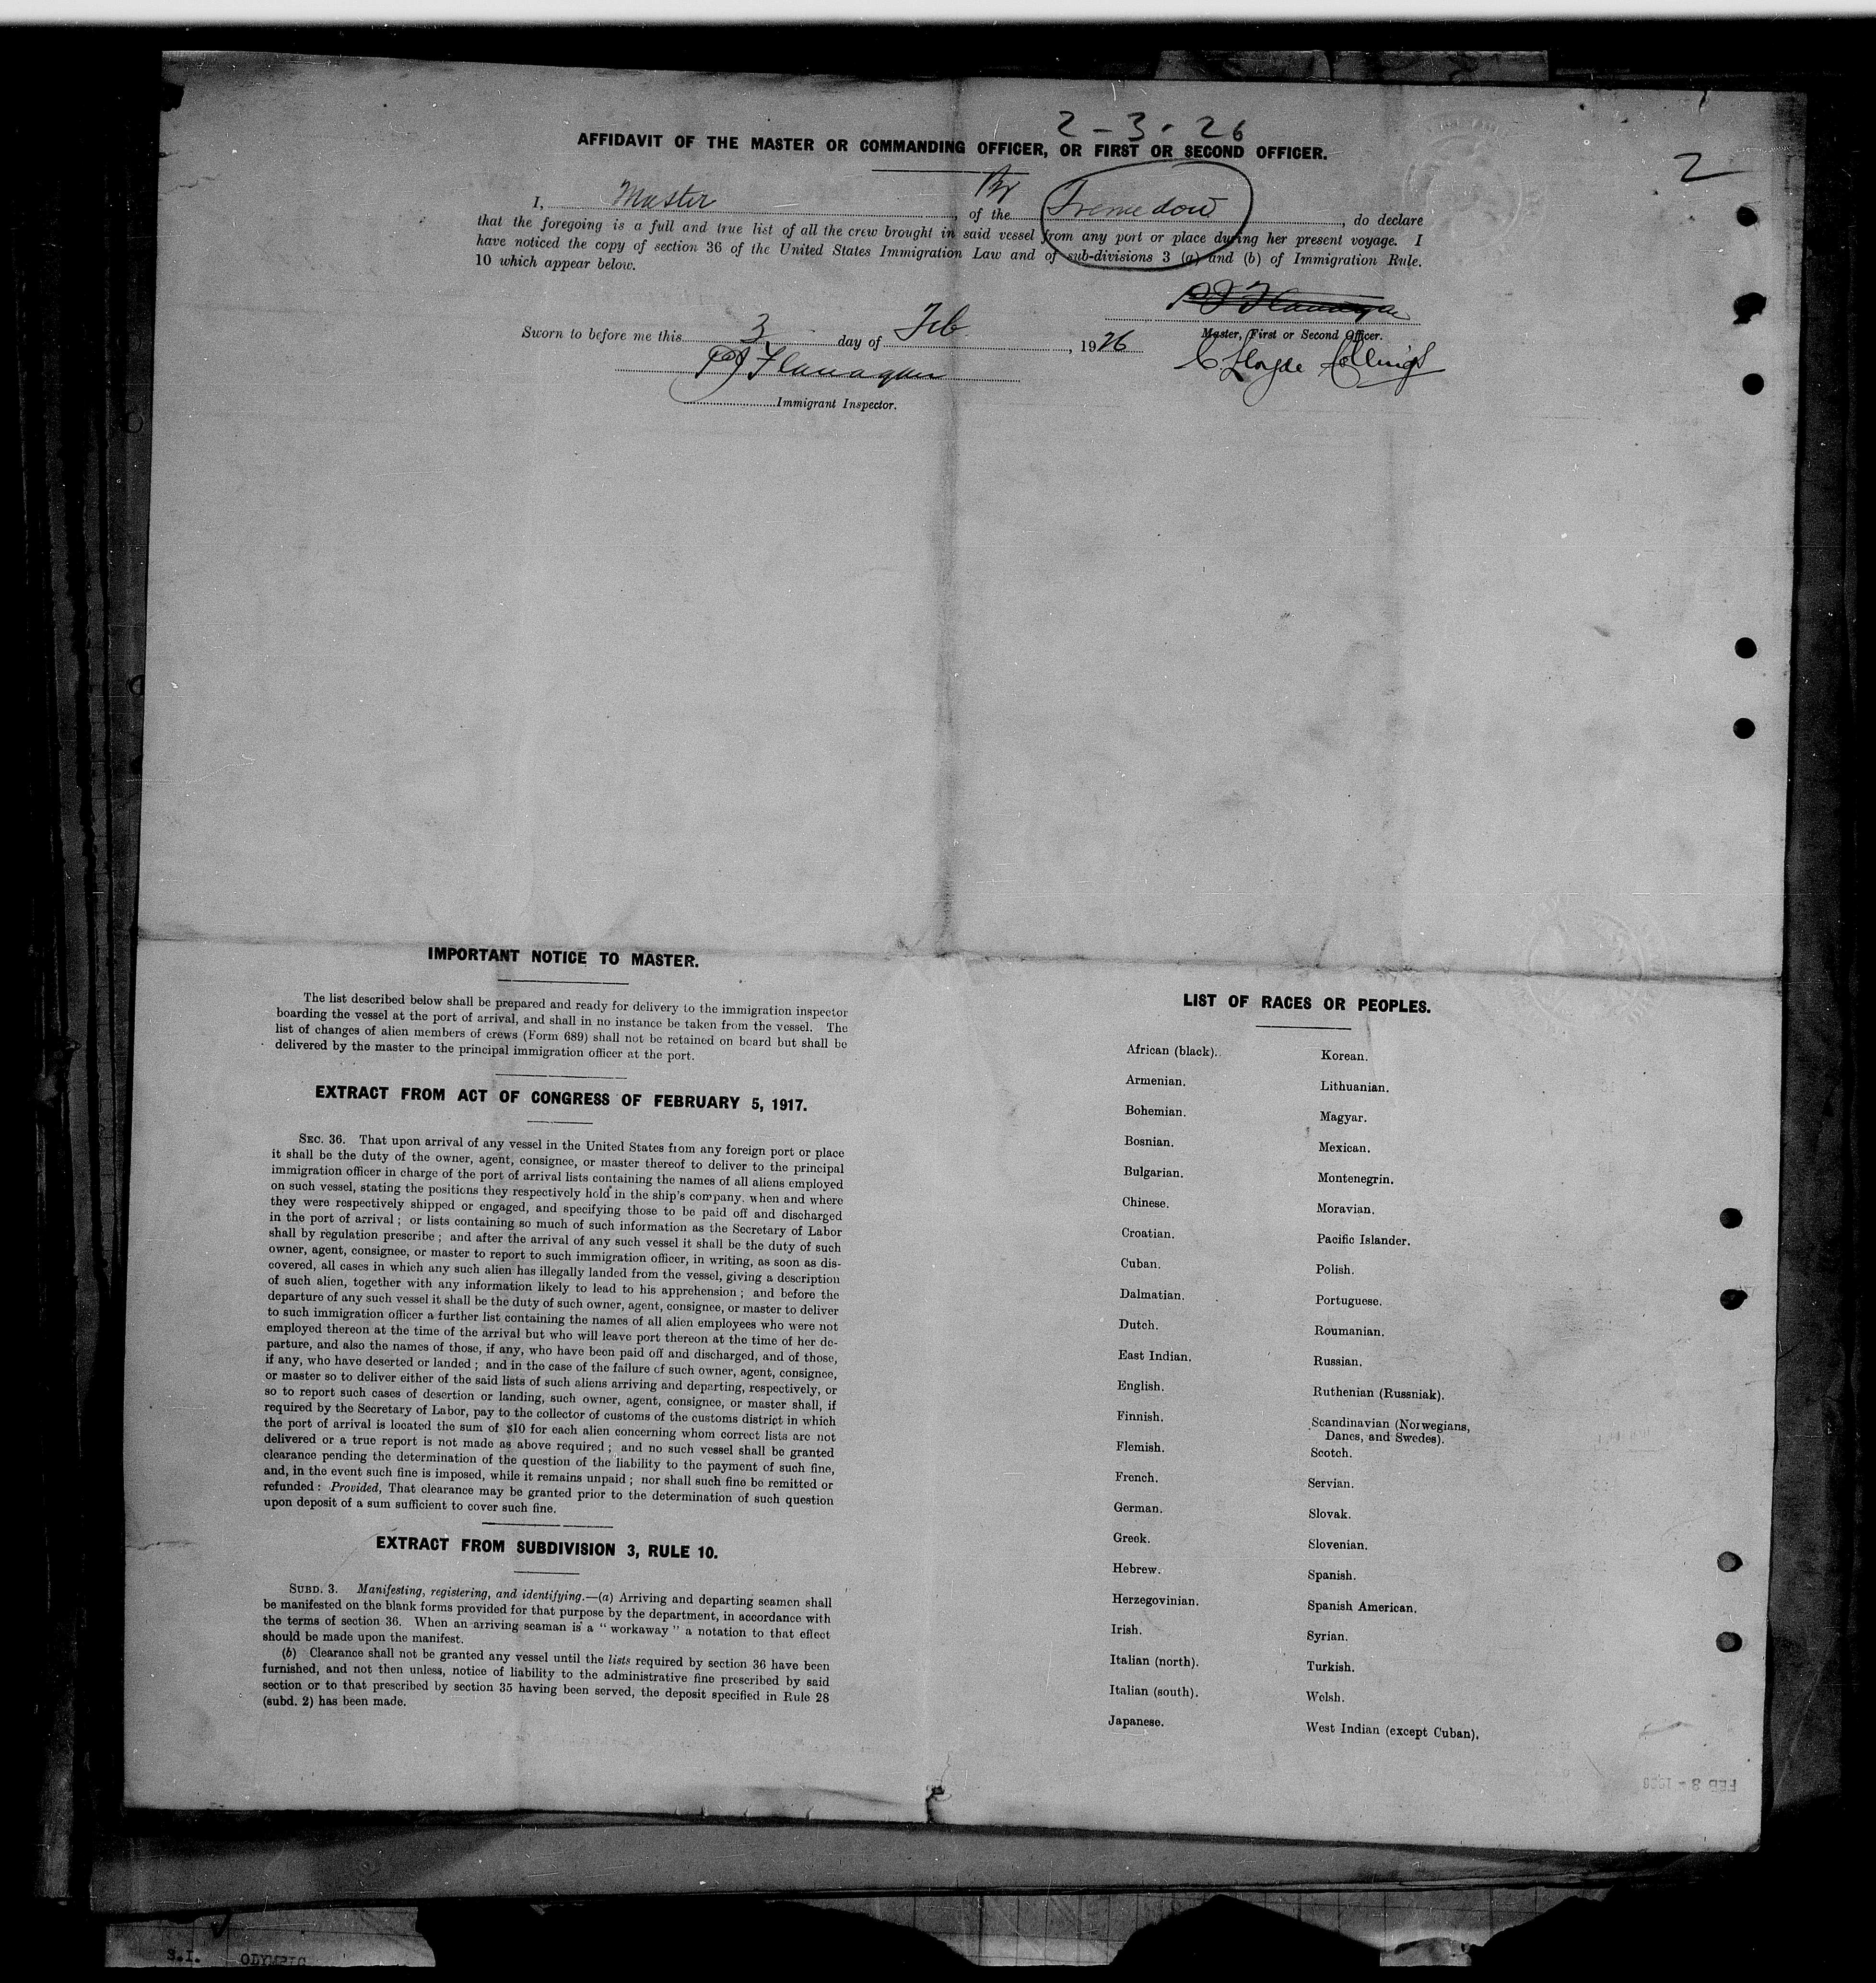 2-3-26
AFFIDAVIT OF THE MASTER OR COMMANDING OFFICER, OR FIRST OR SECOND OFFICER.
2
I, Master, of the Br Tremedow, do declare
that the foregoing is a full and true list of all the crew brought in said vessel from any port or place during her present voyage. I
have noticed the copy of section 36 of the United States Immigration Law and of sub-divisions 3 (a) and (b) of Immigration Rule.
10 which appear below.
P J Flanagan
Sworn to before me this 3 day of Feb, 1926
Master, First or Second Officer.
P J Flanagan
Immigrant Inspector.
IMPORTANT NOTICE TO MASTER.
The list described below shall be prepared and ready for delivery to the immigration inspector
boarding the vessel at the port of arrival, and shall in no instance be taken from the vessel. The
list of changes of alien members of crews (Form 689) shall not be retained on board but shall be
delivered by the master to the principal immigration officer at the port.
EXTRACT FROM ACT OF CONGRESS OF FEBRUARY 5, 1917.
SEC. 36. That upon arrival of any vessel in the United States from any foreign port or place
it shall be the duty of the owner, agent, consignee, or master thereof to deliver to the principal
immigration officer in charge of the port of arrival lists containing the names of all aliens employed
on such vessel, stating the positions they respectively hold in the ship's company, when and where
they were respectively shipped or engaged, and specifying those to be paid off and discharged
in the port of arrival; or lists containing so much of such information as the Secretary of Labor
shall by regulation prescribe; and after the arrival of any such vessel it shall be the duty of such
owner, agent, consignee, or master to report to such immigration officer, in writing, as soon as dis-
covered, all cases in which any such alien has illegally landed from the vessel, giving a description
of such alien, together with any information likely to lead to his apprehension; and before the
departure of any such vessel it shall be the duty of such owner, agent, consignee, or master to deliver
to such immigration officer a further list containing the names of all alien employees who were not
employed thereon at the time of the arrival but who will leave port thereon at the time of her de-
parture, and also the names of those, if any, who have been paid off and discharged, and of those,
if any, who have deserted or landed; and in the case of the failure of such owner, agent, consignee,
or master so to deliver either of the said lists of such aliens arriving and departing, respectively, or
so to report such cases of desertion or landing, such owner, agent, consignee, or master shall, if
required by the Secretary of Labor, pay to the collector of customs of the customs district in which
the port of arrival is located the sum of $10 for each alien concerning whom correct lists are not
delivered or a true report is not made as above required; and no such vessel shall be granted
clearance pending the determination of the question of the liability to the payment of such fine,
and, in the event such fine is imposed, while it remains unpaid; nor shall such fine be remitted or
refunded: Provided, That clearance may be granted prior to the determination of such question
upon deposit of a sum sufficient to cover such fine.
EXTRACT FROM SUBDIVISION 3, RULE 10.
SUBD. 3. Manifesting, registering, and identifying.—(a) Arriving and departing seamen shall
be manifested on the blank forms provided for that purpose by the department, in accordance with
the terms of section 36. When an arriving seaman is a "workaway" a notation to that effect
should be made upon the manifest.
(b) Clearance shall not be granted any vessel until the lists required by section 36 have been
furnished, and not then unless, notice of liability to the administrative fine prescribed by said
section or to that prescribed by section 35 having been served, the deposit specified in Rule 28
(subd. 2) has been made.
LIST OF RACES OR PEOPLES.
African (black).
Armenian.
Bohemian.
Bosnian.
Bulgarian.
Chinese.
Croatian.
Cuban.
Dalmatian.
Dutch.
East Indian.
English.
Finnish.
Flemish.
French.
German.
Greek.
Hebrew.
Herzegovinian.
Irish.
Italian (north).
Italian (south).
Japanese.
Korean.
Lithuanian.
Magyar.
Mexican.
Montenegrin.
Moravian.
Pacific Islander.
Polish.
Portuguese.
Roumanian.
Russian.
Ruthenian (Russniak).
Scandinavian (Norwegians,
Danes, and Swedes).
Scotch.
Servian.
Slovak.
Slovenian.
Spanish.
Spanish American.
Syrian.
Turkish.
Welsh.
West Indian (except Cuban).
S.I. OLYMPIC